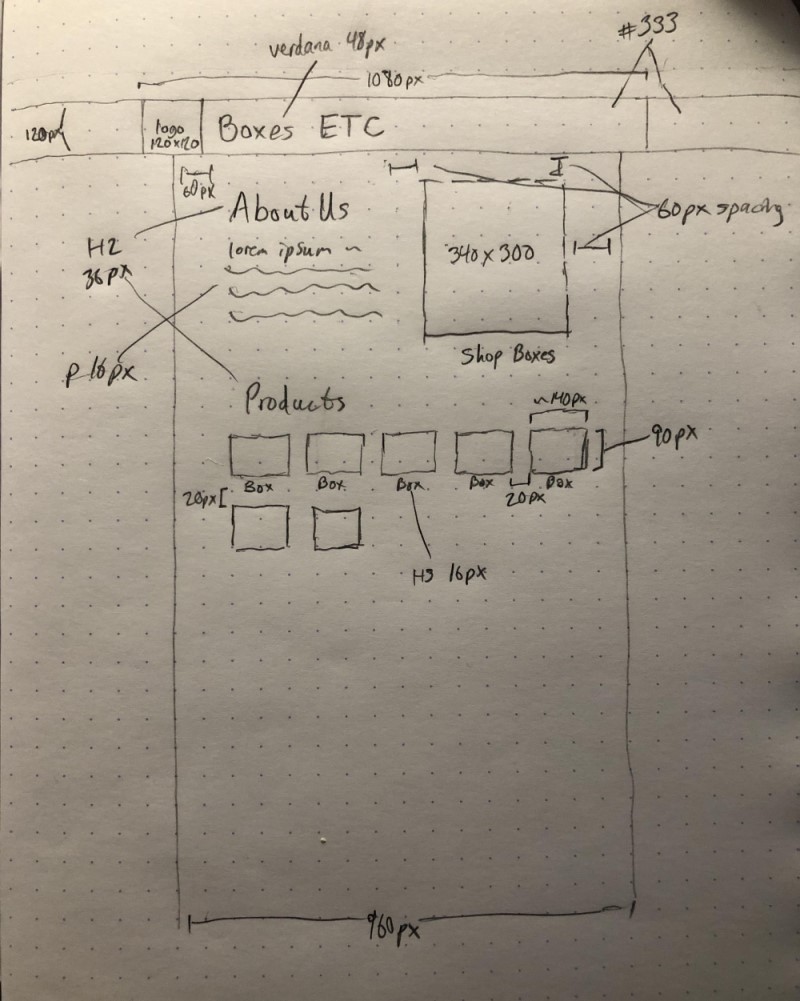 verdana 48px
#333
1080px
120px
logo
120x120
Boxes ETC
60px
About Us
60px spacing
H2
36px
lorem ipsum
340x300
Shop Boxes
P 16px
Products
~140px
90px
Box
Box
Box
Box
Box
20px
20px
H3 16px
960px